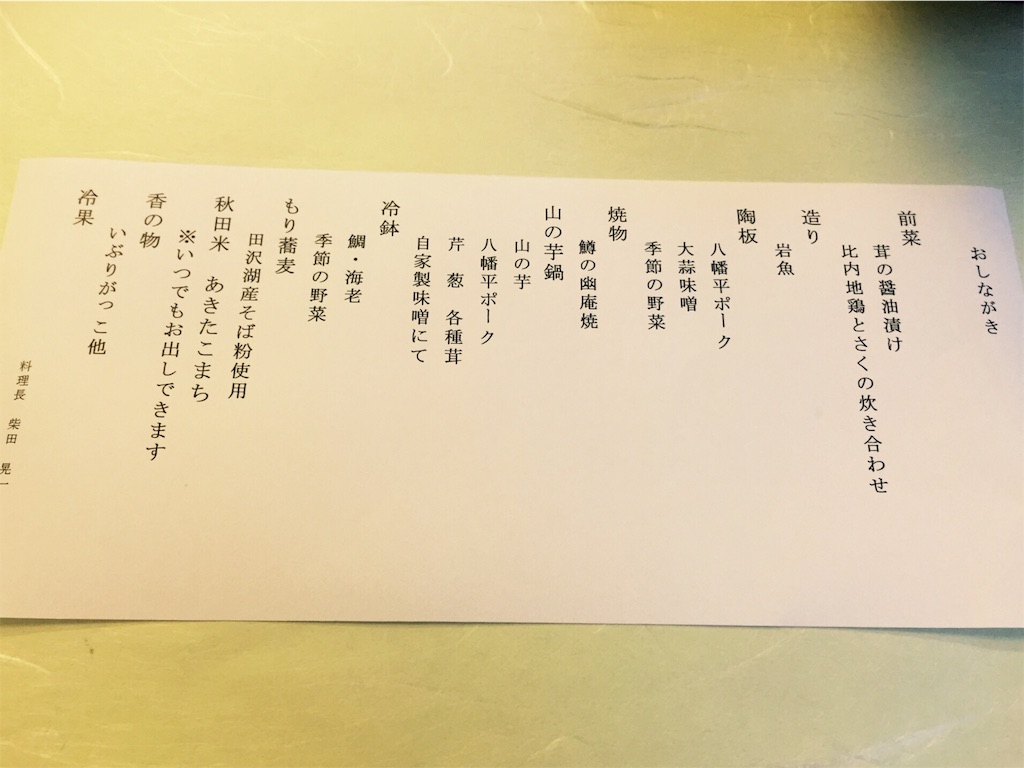 おしながき
前菜
茸の醤油漬け
比内地鶏とさくの炊き合わせ
造り
岩魚
陶板
八幡平ポーク
大蒜味噌
季節の野菜
焼物
鱒の幽庵焼
山の芋鍋
山の芋
八幡平ポーク
芹 葱 各種茸
自家製味噌にて
冷鉢
鯛・海老
季節の野菜
もり蕎麦
田沢湖産そば粉使用
秋田米 あきたこまち
※いつでもお出しできます
香の物
いぶりがっこ他
冷果
料理長 柴田 晃一